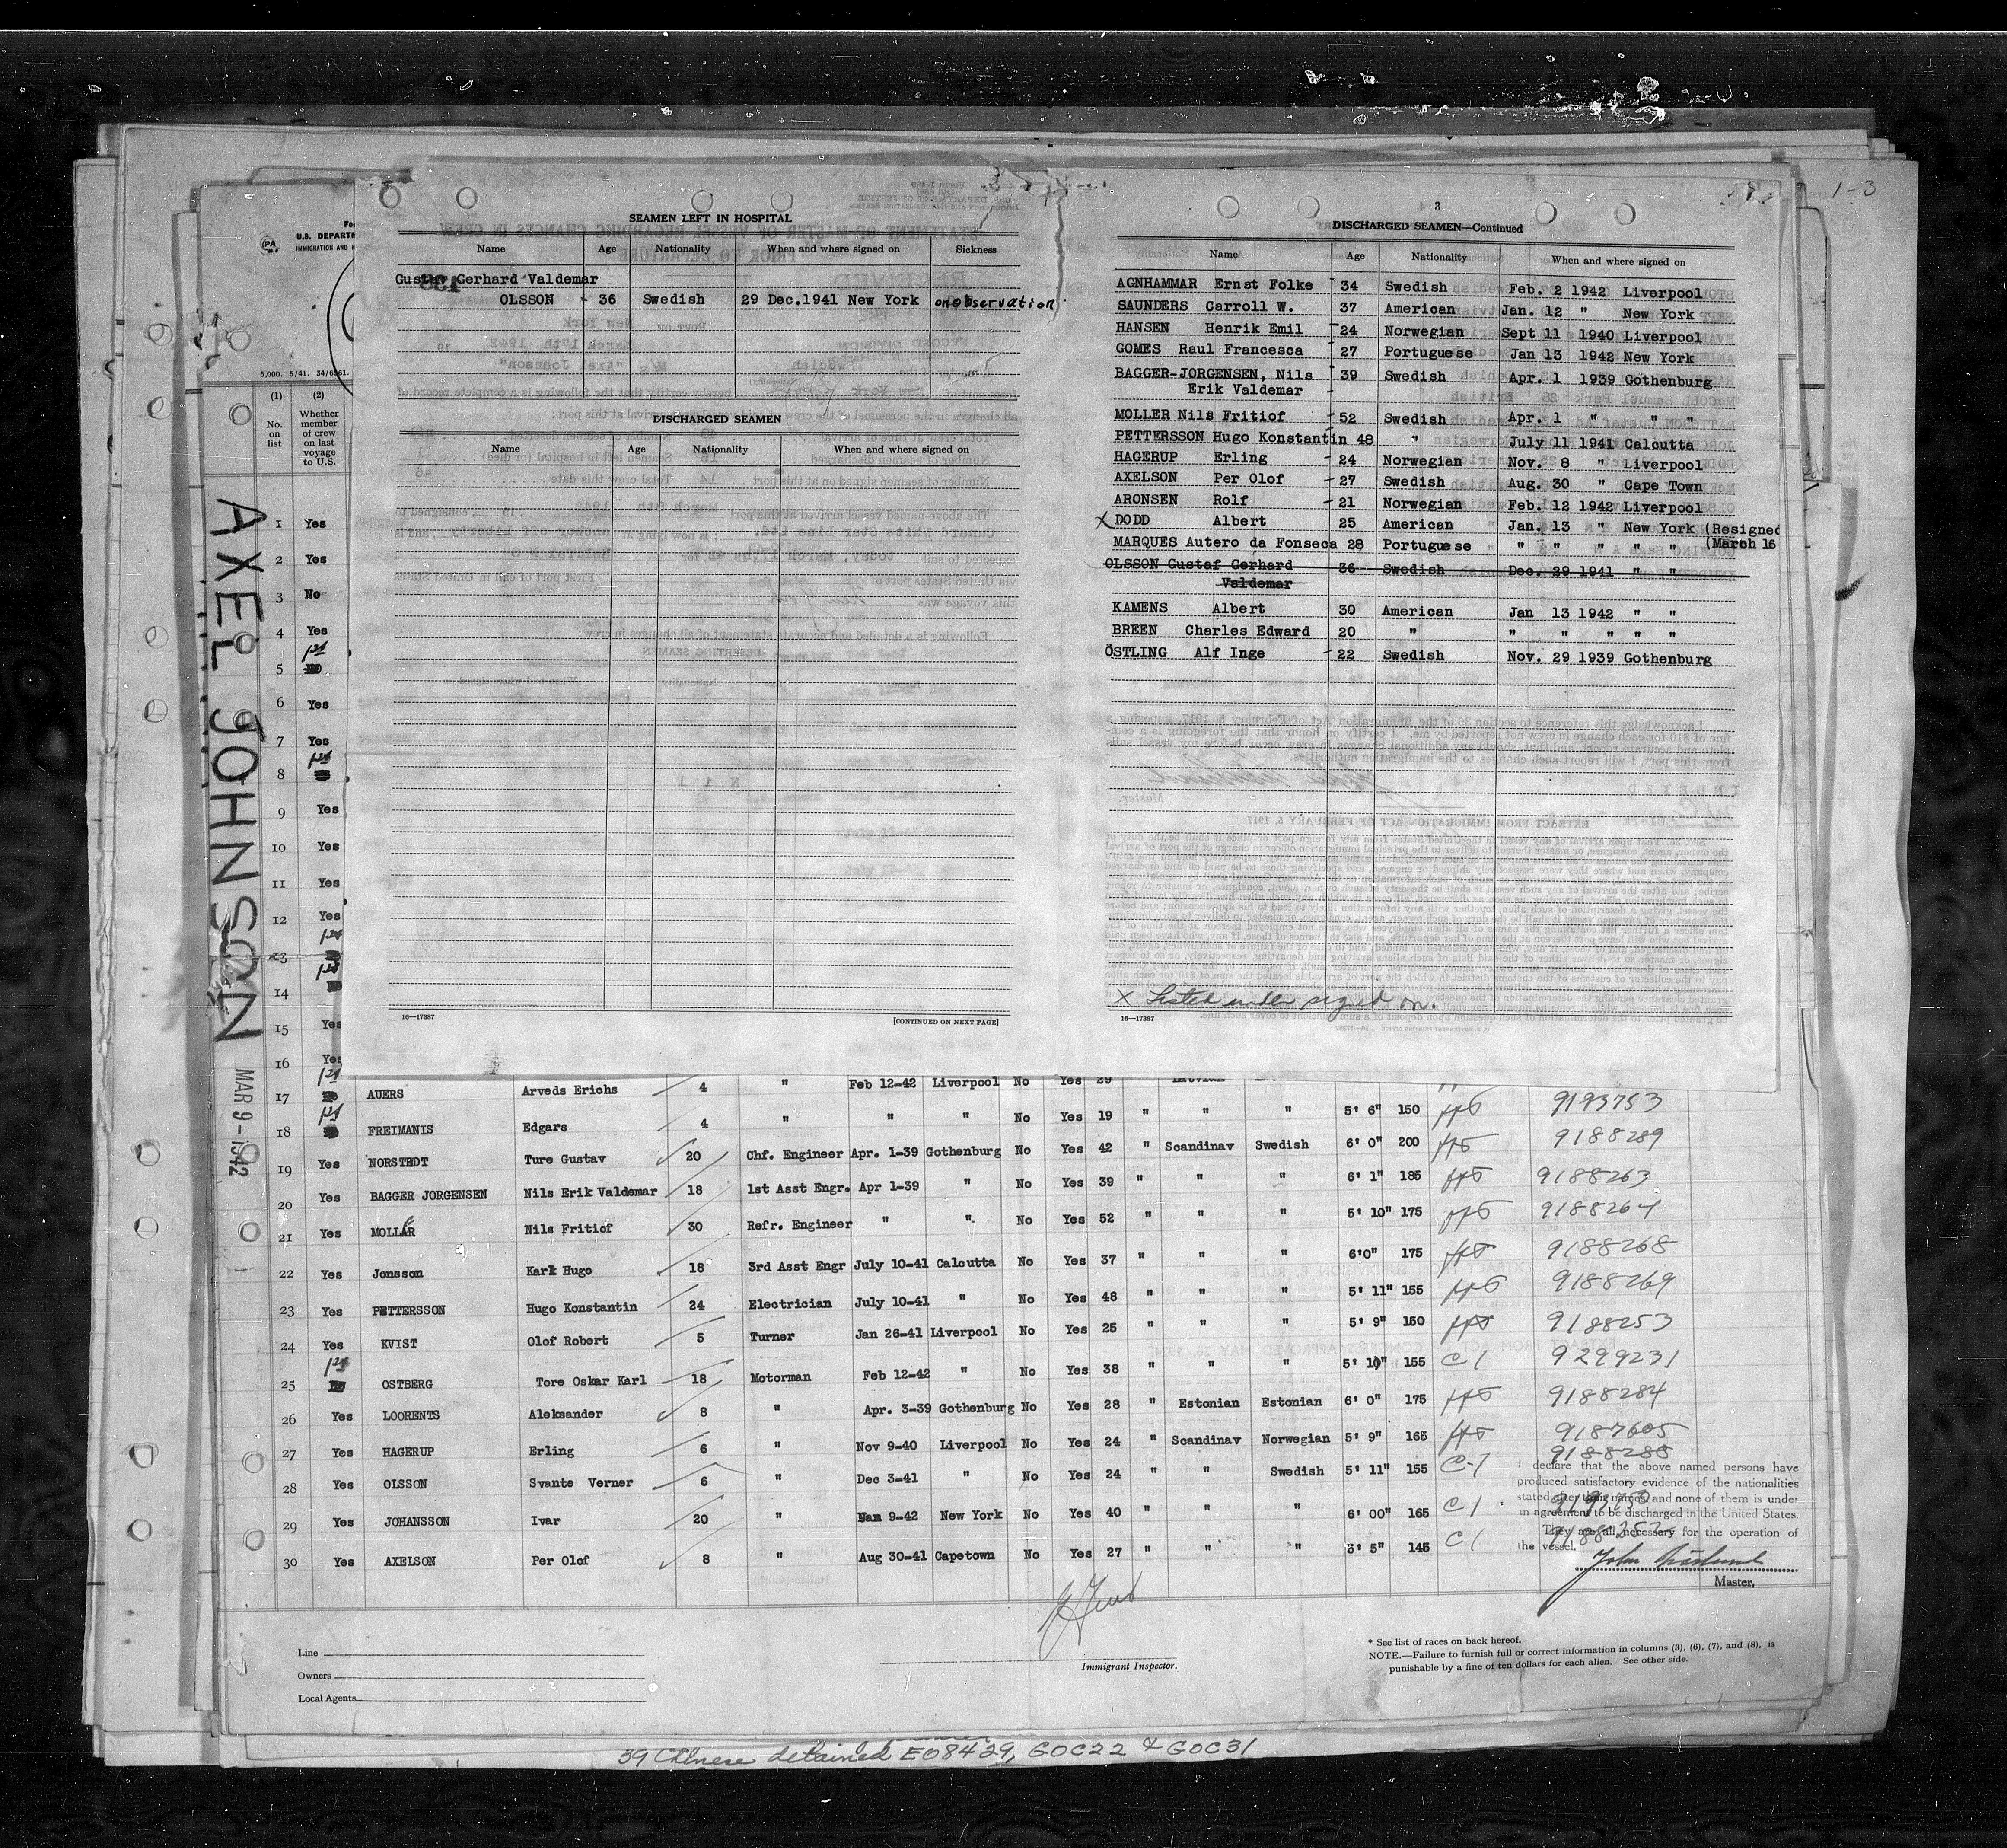 1-3
SEAMEN LEFT IN HOSPITAL
Name Age Nationality When and where signed on Sickness
Gustav Gerhard Valdemar
OLSSON - 36 Swedish 29 Dec.1941 New York on observation
DISCHARGED SEAMEN
Name Age Nationality When and where signed on
16—17387
[CONTINUED ON NEXT PAGE]
3
DISCHARGED SEAMEN—Continued
Name Age Nationality When and where signed on
AGNHAMMAR Ernst Folke - 34 Swedish Feb. 2 1942 Liverpool
SAUNDERS Carroll W. 37 American Jan. 12 " New York
HANSEN Henrik Emil - 24 Norwegian Sept 11 1940 Liverpool
GOMES Raul Francesca - 27 Portuguese Jan 13 1942 New York
BAGGER-JORGENSEN, Nils - 39 Swedish Apr. 1 1939 Gothenburg
Erik Valdemar -
MOLLER Nils Fritiof - 52 Swedish Apr. 1 " " "
PETTERSSON Hugo Konstantin 48 " July 11 1941 Calcutta
HAGERUP Erling - 24 Norwegian Nov. 8 " Liverpool
AXELSON Per Olof - 27 Swedish Aug. 30 " Cape Town
ARONSEN Rolf - 21 Norwegian Feb. 12 1942 Liverpool
X DODD Albert 25 American Jan. 13 " New York (Resigned
MARQUES Autero da Fonseca 28 Portuguese " " " " " (March 16
OLSSON Gustaf Gerhard 36 Swedish Dec. 29 1941 " "
Valdemar
KAMENS Albert 30 American Jan 13 1942 " "
BREEN Charles Edward 20 " " " " " "
ÖSTLING Alf Inge - 22 Swedish Nov. 29 1939 Gothenburg
X Listed under signed on.
16—17387
U.S. DEPART
IMMIGRATION AND
5,000. 5/41. 34/6561.
(1) (2)
No. on list
Whether member of crew on last voyage to U.S.
AXEL JOHNSON
MAR 9-1942
1 Yes
2 Yes
3 No
4 Yes
5 1st
6 Yes
7 Yes
8 1st
9 Yes
10 Yes
11 Yes
12 Yes
13 1st
14 1st
15 Yes
16 Yes
17 1st AUERS Arveds Erichs 4 " Feb 12-42 Liverpool No Yes 29
18 1st FREIMANIS Edgars 4 " " " No Yes 19 " " " 5' 6" 150 9193753
19 Yes NORSTEDT Ture Gustav 20 Chf. Engineer Apr. 1-39 Gothenburg No Yes 42 " Scandinav Swedish 6' 0" 200 9188289
20 Yes BAGGER JORGENSEN Nils Erik Valdemar 18 1st Asst Engr. Apr 1-39 " No Yes 39 " " " 6' 1" 185 9188263
21 Yes MOLLER Nils Fritiof 30 Refr. Engineer " " No Yes 52 " " " 5' 10" 175 9188264
22 Yes Jonsson Karl Hugo 18 3rd Asst Engr July 10-41 Calcutta No Yes 37 " " " 6'0" 175 9188268
23 Yes PETTERSSON Hugo Konstantin 24 Electrician July 10-41 " No Yes 48 " " " 5' 11" 155 9188269
24 Yes KVIST Olof Robert 5 Turner Jan 26-41 Liverpool No Yes 25 " " " 5' 9" 150 9188253
25 1st OSTBERG Tore Oskar Karl 18 Motorman Feb 12-42 " No Yes 38 " " " 5' 10" 155 C1 9299231
26 Yes LOORENTS Aleksander 8 " Apr. 3-39 Gothenburg No Yes 28 " Estonian Estonian 6' 0" 175 9188284
27 Yes HAGERUP Erling 6 " Nov 9-40 Liverpool No Yes 24 " Scandinav Norwegian 5' 9" 165 9187605
28 Yes OLSSON Svante Verner 6 " Dec 3-41 " No Yes 24 " " Swedish 5' 11" 155 C-1 9188288
29 Yes JOHANSSON Ivar 20 " Jan 9-42 New York No Yes 40 " " " 6' 00" 165 C1
30 Yes AXELSON Per Olof 8 " Aug 30-41 Capetown No Yes 27 " " " 5' 5" 145 C1
I declare that the above named persons have
produced satisfactory evidence of the nationalities
stated after their names, and none of them is under
an agreement to be discharged in the United States.
They are all necessary for the operation of
the vessel.
Master.
Immigrant Inspector.
Line
Owners
Local Agents
* See list of races on back hereof.
NOTE.—Failure to furnish full or correct information in columns (3), (6), (7), and (8), is
punishable by a fine of ten dollars for each alien. See other side.
39 Chinese detained E08429, GOC22 & GOC31